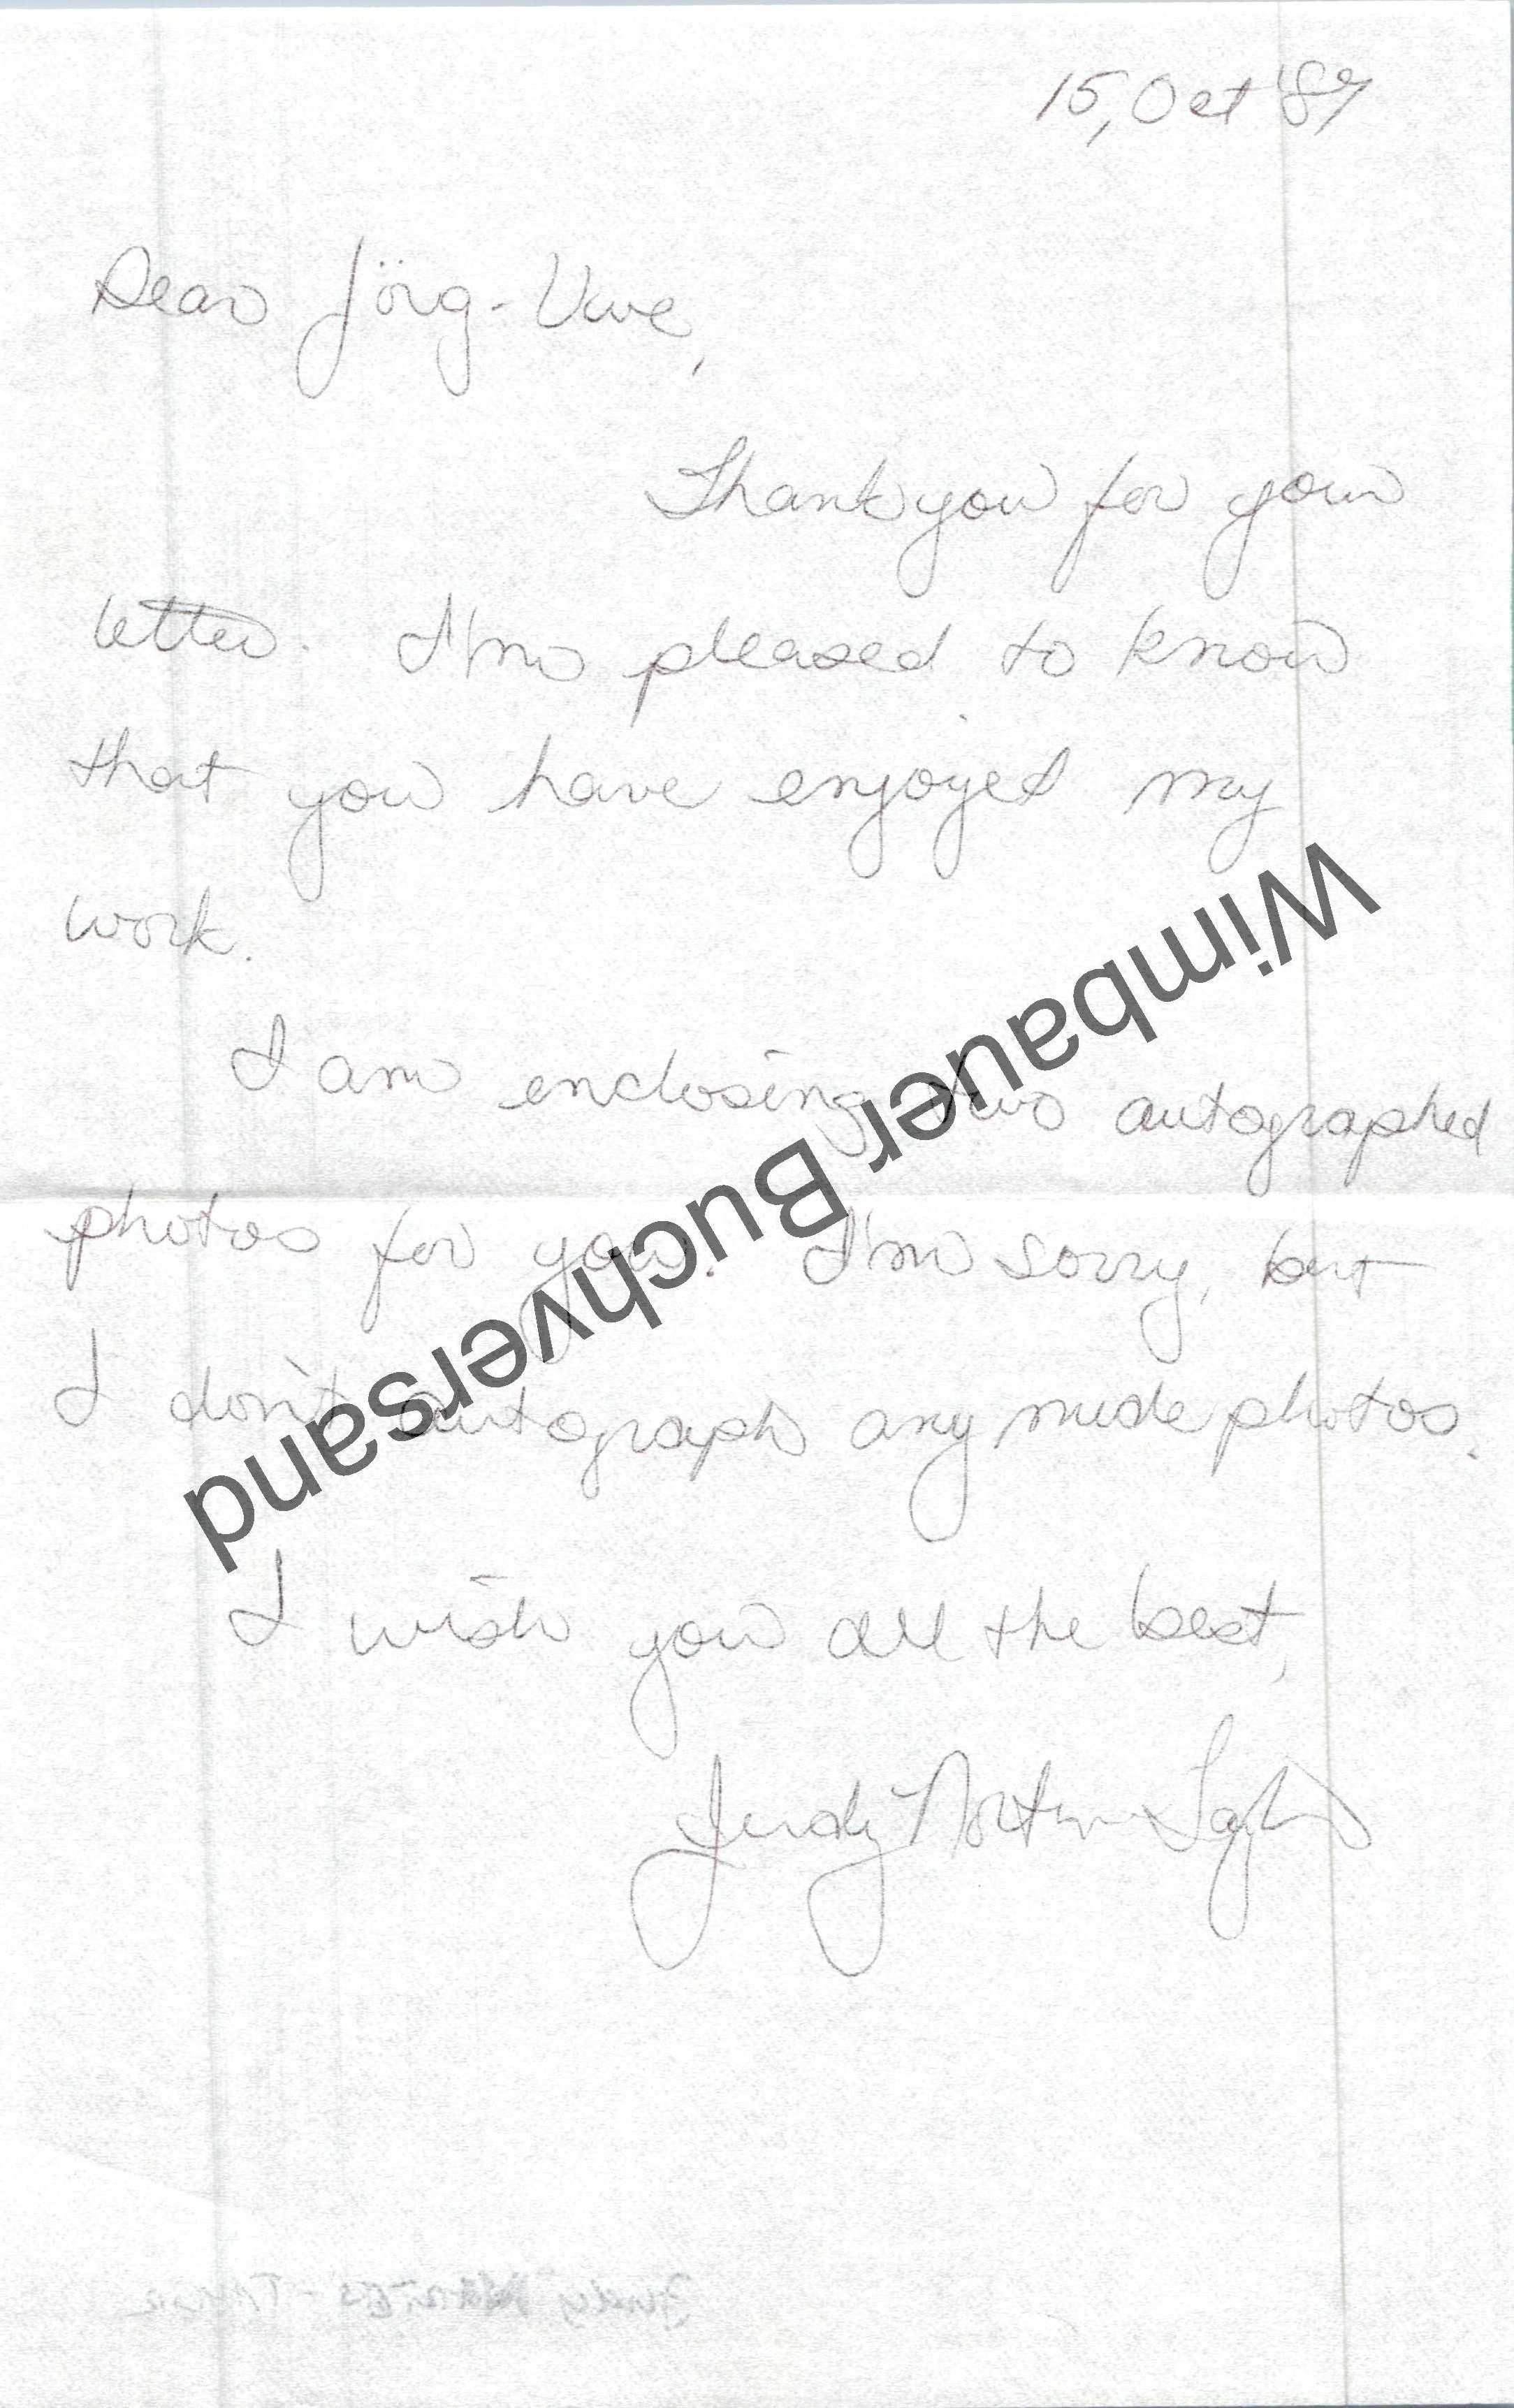 15, Oct '87
Dear Jörg-Uwe,
Thank you for your
letter. I'm pleased to know
that you have enjoyed my
work.
I am enclosing two autographed
photos for you. I'm sorry, but
I don't autograph any nude photos.
I wish you all the best,
Judy Norton-Taylor
Wimbauer Buchversand